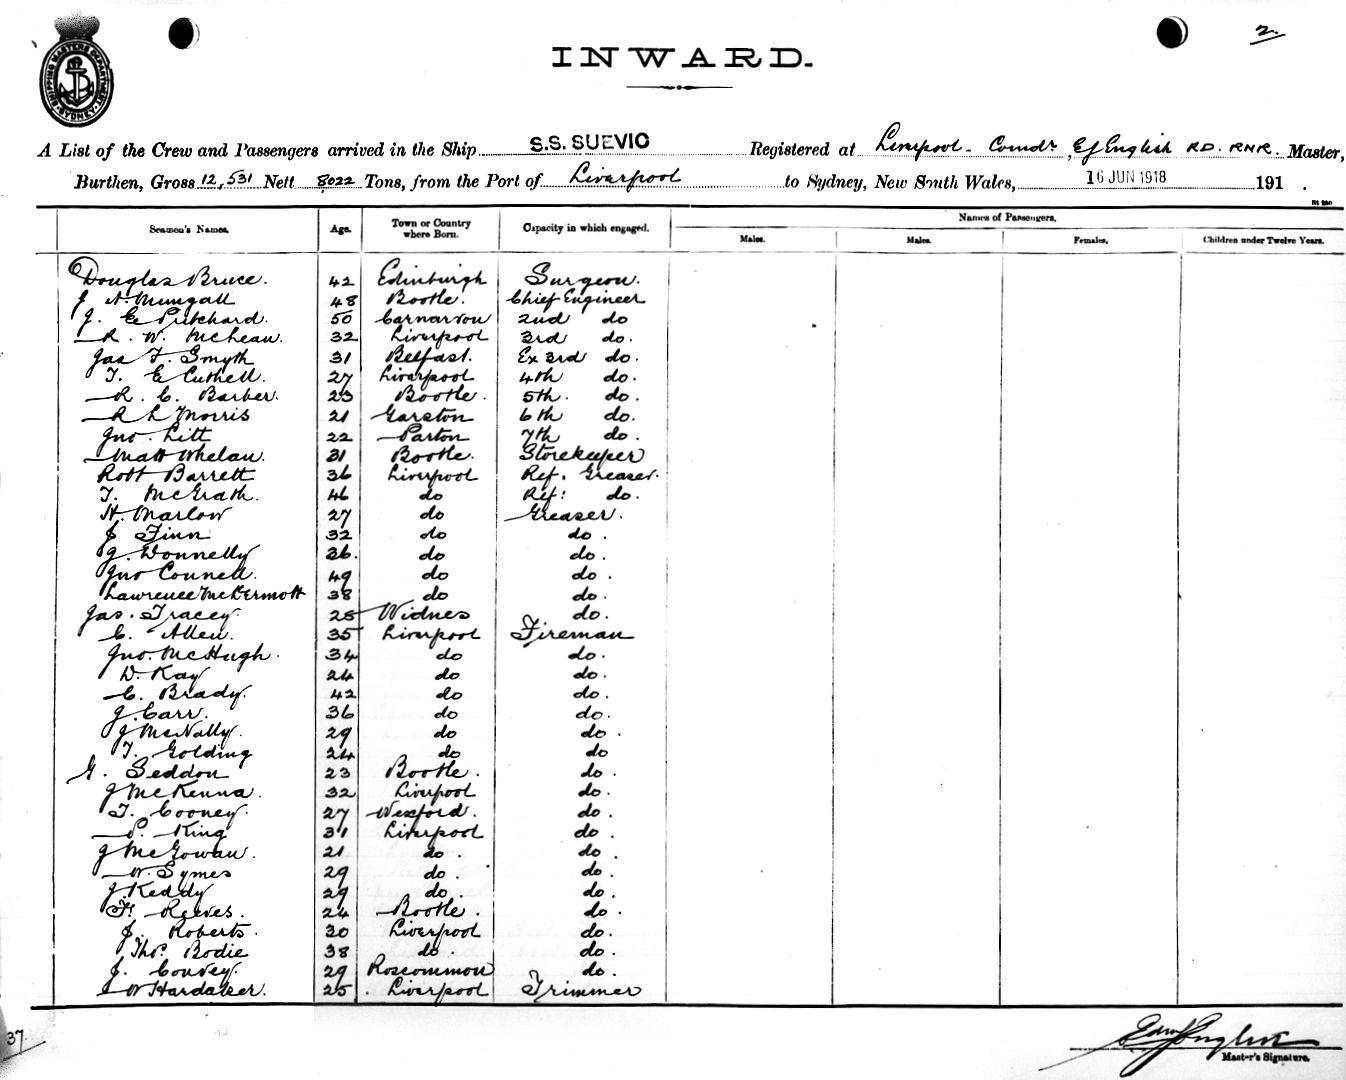 SHIPPING MASTERS DEPARTMENT
SYDNEY
2.
INWARD.
A List of the Crew and Passengers arrived in the Ship S.S. SUEVIC Registered at Liverpool - Comdr, EJ English RD. RNR. Master,
Burthen, Gross 12,531 Nett 8022 Tons, from the Port of Liverpool to Sydney, New South Wales, 16 JUN 1918 191 .
Seamen's Names. Age. Town or Country where Born. Capacity in which engaged. Names of Passengers.
Males. Males. Females. Children under Twelve Years.
Douglas Bruce. 42 Edinburgh Surgeon.
J A. Mungall 48 Bootle. Chief Engineer
J. E Pritchard. 50 Carnarvon 2nd do
R. W. McLean. 32 Liverpool 3rd do.
Jas F. Smyth 31 Belfast. Ex 3rd do.
T. E Cuthell. 27 Liverpool 4th do.
R. C. Barber. 23 Bootle. 5th. do.
R L Morris 21 Garston 6th do.
Jno. Litt 22 Parton 7th do.
Matt Whelan. 31 Bootle. Storekeeper
Robt Barrett 36 Liverpool Ref. Greaser.
T. McGrath. 46 do Ref: do.
H. Marlow 27 do Greaser.
J Finn 32 do do.
J. Donnelly 36. do do.
Jno Connell. 49 do do.
Lawrence McDermott 38 do do.
Jas. Tracey. 25 Widnes do.
C. Allen. 35 Liverpool Fireman
Jno. McHugh. 34 do do.
D. Kay 24 do do.
C. Brady. 42 do do.
J. Carr. 36 do do.
J McNally. 29 do do.
T. Golding 24 do do
G. Seddon 23 Bootle. do.
J McKenna. 32 Liverpool do.
T. Cooney. 27 Wexford. do.
P. King 31 Liverpool do.
J McGowan. 21 do. do.
W. Symes 29 do. do.
J. Keddy 29 do. do.
H Reeves. 24 Bootle. do.
J. Roberts. 30 Liverpool do.
Thos. Bodie 38 do. do.
J. Convey. 29 Roscommon do.
W Hardaker. 25. Liverpool Trimmer
37
Edw J English
Master's Signature.